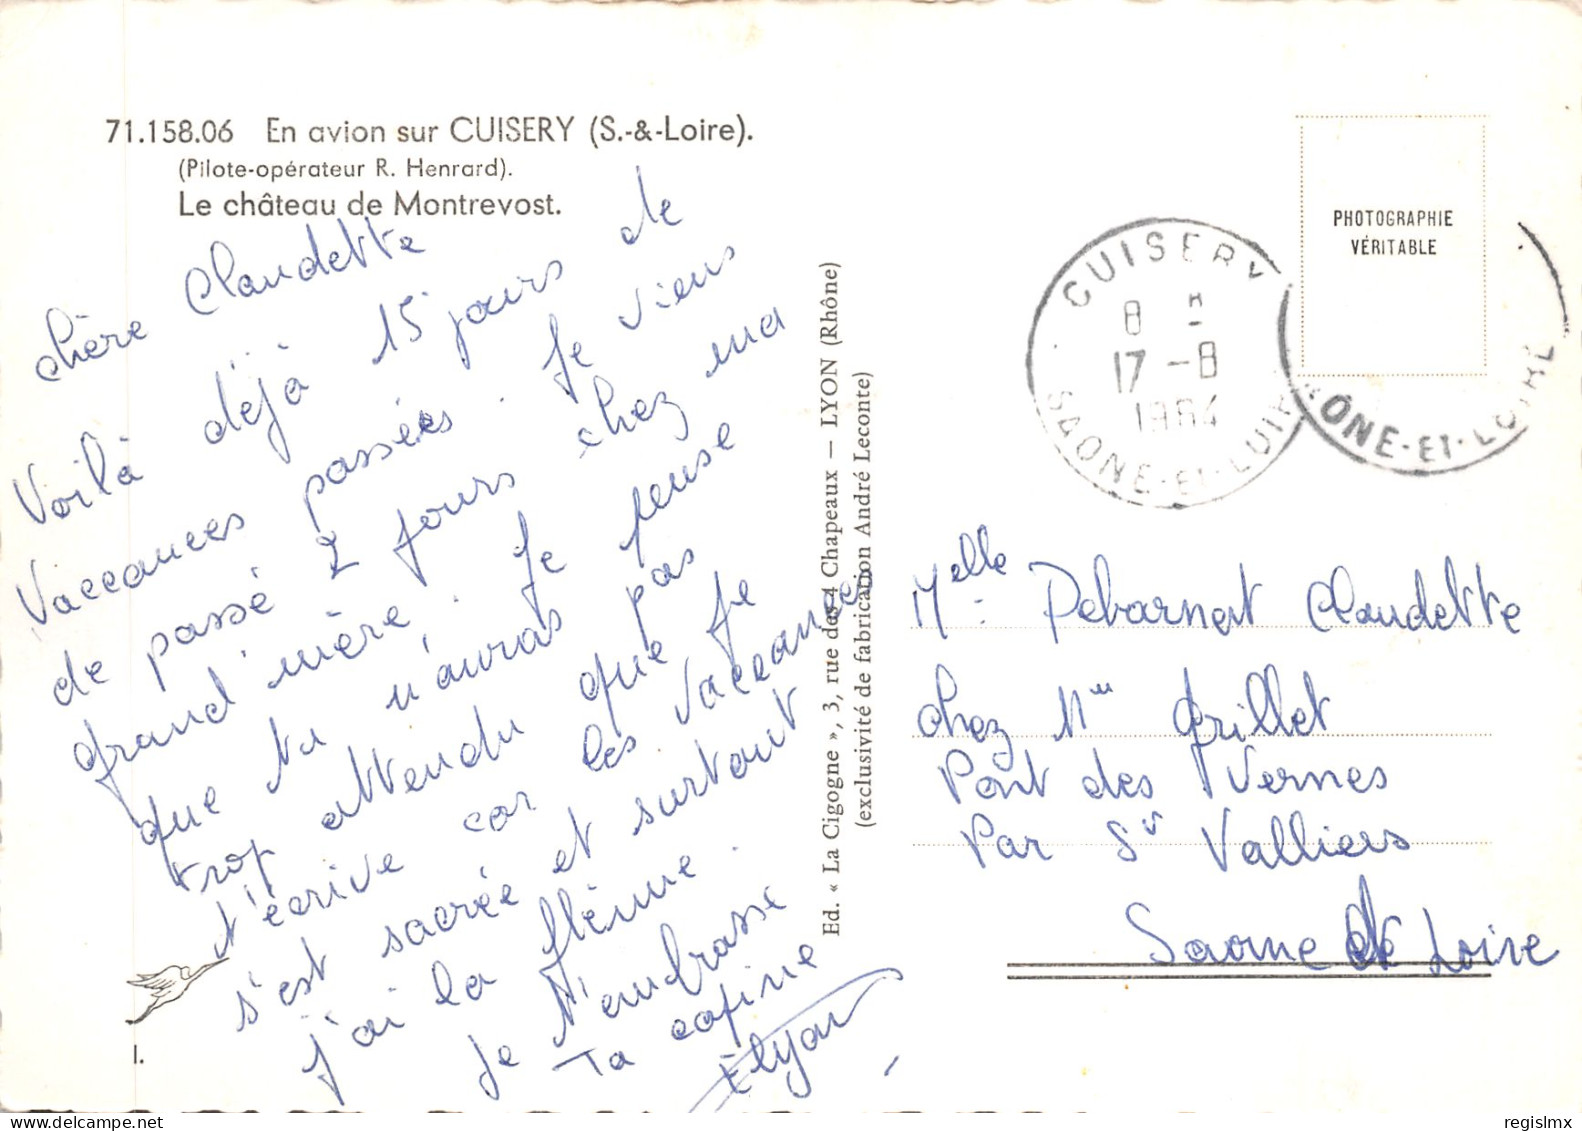 71.158.06 En avion sur CUISERY (S.-&-Loire).
(Pilote-opérateur R. Henrard).
Le château de Montrevost.
chère Claudette
Voilà déjà 15 jours de
Vaccances passées. Je viens
de passé 2 jours chez ma
grand'mère. Je pense
que tu n'auras pas
trop attendu que je
t'écrive car les vaccances
s'est sacrée et surtout
j'ai la flème.
Je t'embrasse
Ta copine
I.
Ed. « La Cigogne », 3, rue des 4 Chapeaux — LYON (Rhône)
(exclusivité de fabrication André Leconte)
PHOTOGRAPHIE
VÉRITABLE
CUISERY
8 H
17 -8
1964
SAONE-ET-LOIRE
ONE-ET-LOIRE
Melle Debarnat Claudette
chez Mme Grillet
Pont des Vernes
Par St Valliers
Saone et Loire
regislmx